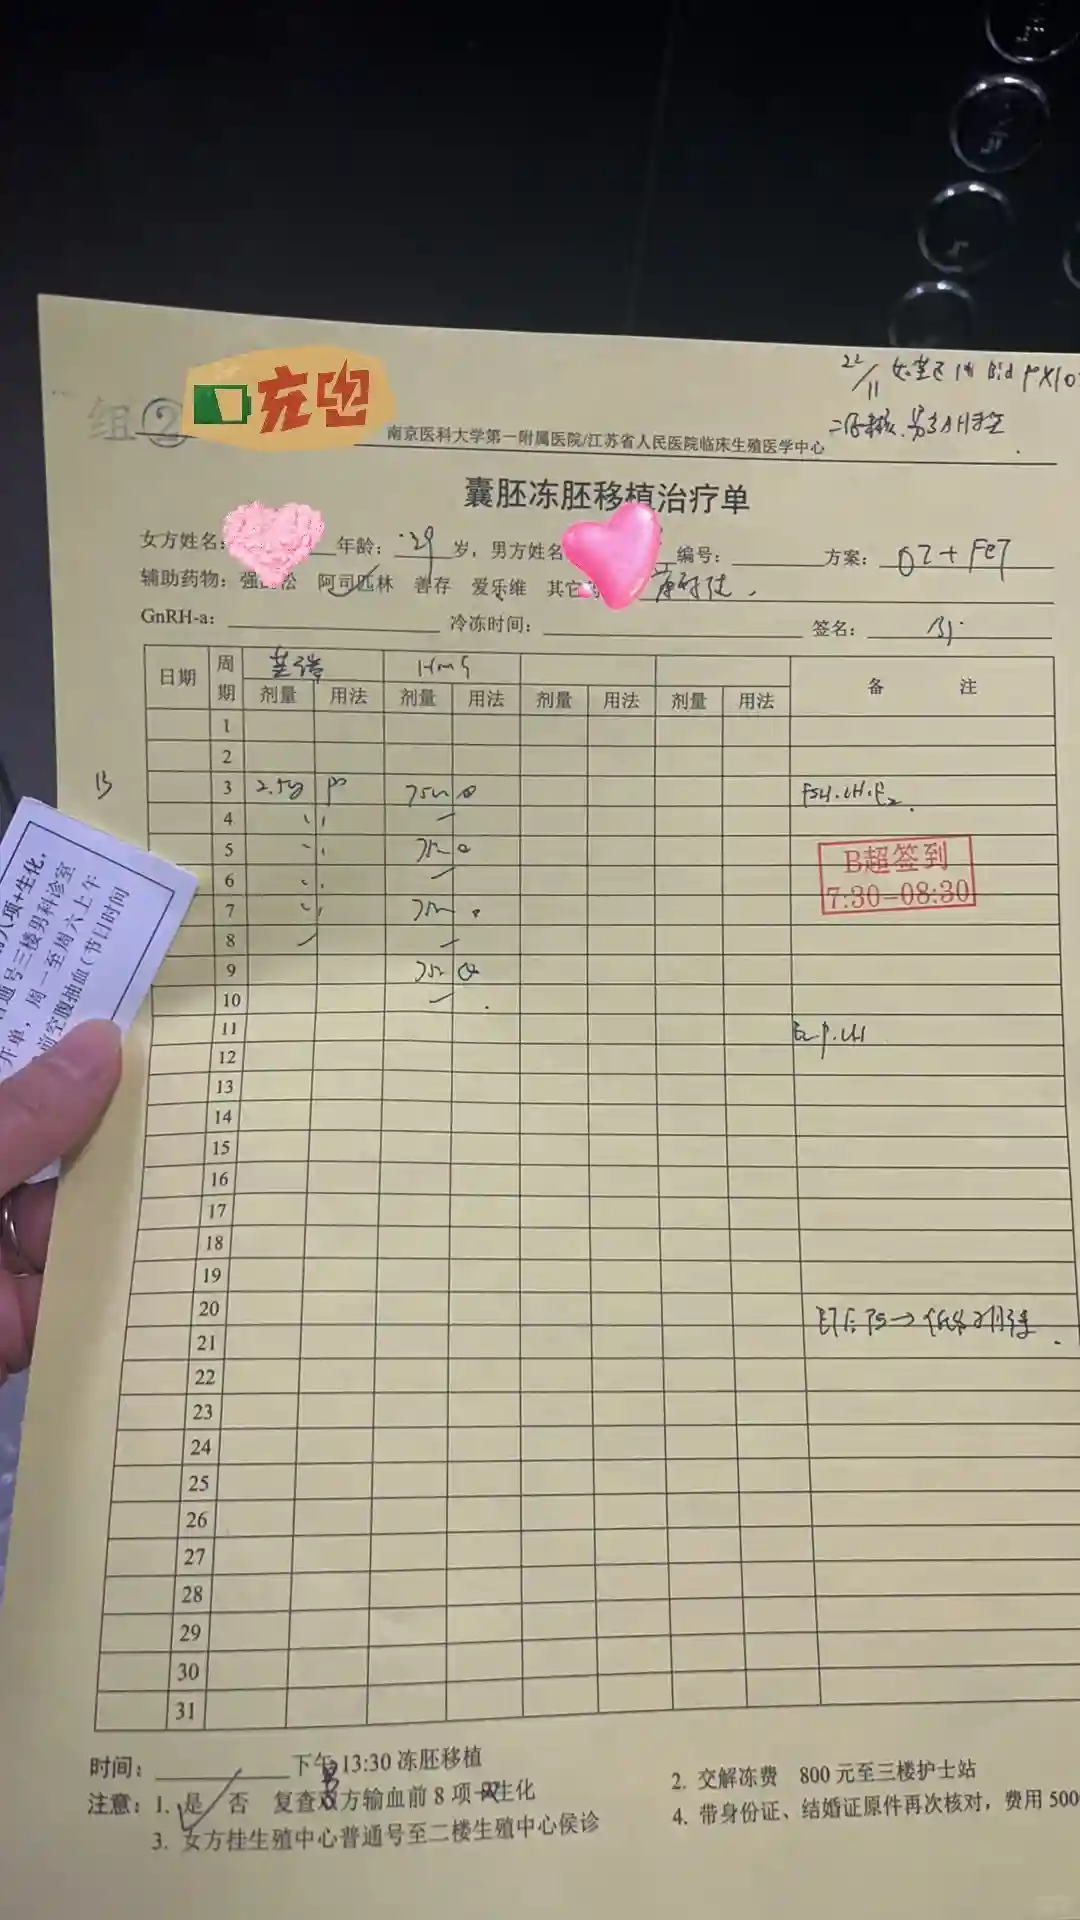 22/11
组②
充电
南京医科大学第一附属医院/江苏省人民医院临床生殖医学中心
囊胚冻胚移植治疗单
女方姓名: 年龄: 29 岁，男方姓名 编号: 方案: OI+FET
辅助药物: 强 松 阿司匹林 善存 爱乐维 其它
GnRH-a: 冷冻时间: 签名:
日期 周期 HMG 备 注
剂量 用法 剂量 用法 剂量 用法 剂量 用法
1
2
B
3 2.5mg po 75u FSH.LH.E2.
4
5 75u
B超签到
7:30-08:30
6
7 75u
8
9 75u
10
11 E2.P.LH
12
13
14
15
16
17
18
19
20
21
22
23
24
25
26
27
28
29
30
31
八项+生化，
通号三楼男科诊室
开单，周一至周六上午
前空腹抽血（节日时间
时间: 下午 13:30 冻胚移植
注意: 1. 是 否 复查 男方输血前 8 项 生化
2. 交解冻费 800 元至三楼护士站
3. 女方挂生殖中心普通号至二楼生殖中心候诊
4. 带身份证、结婚证原件再次核对，费用 500